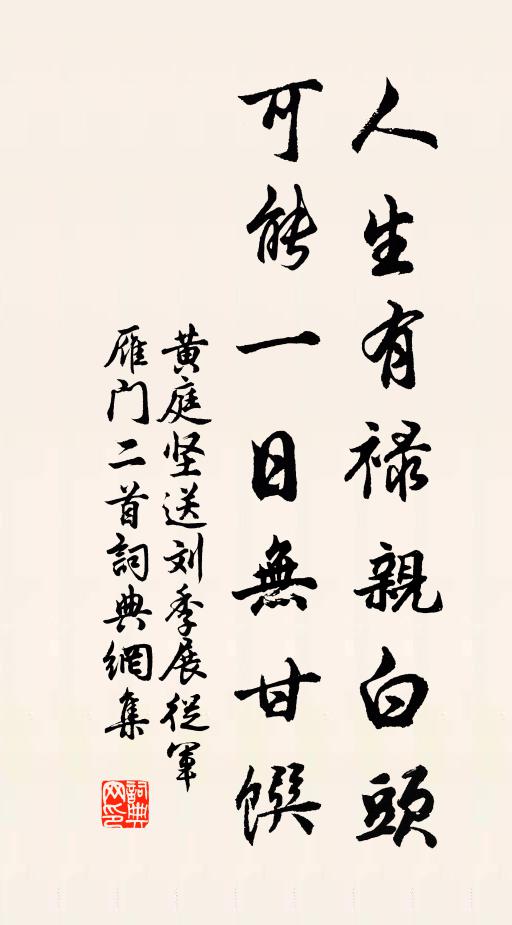 人生有禄親白頭
可能一日無甘饌
黄庭坚送刘季展從軍
雁门二首詞典網集
詞典
网印